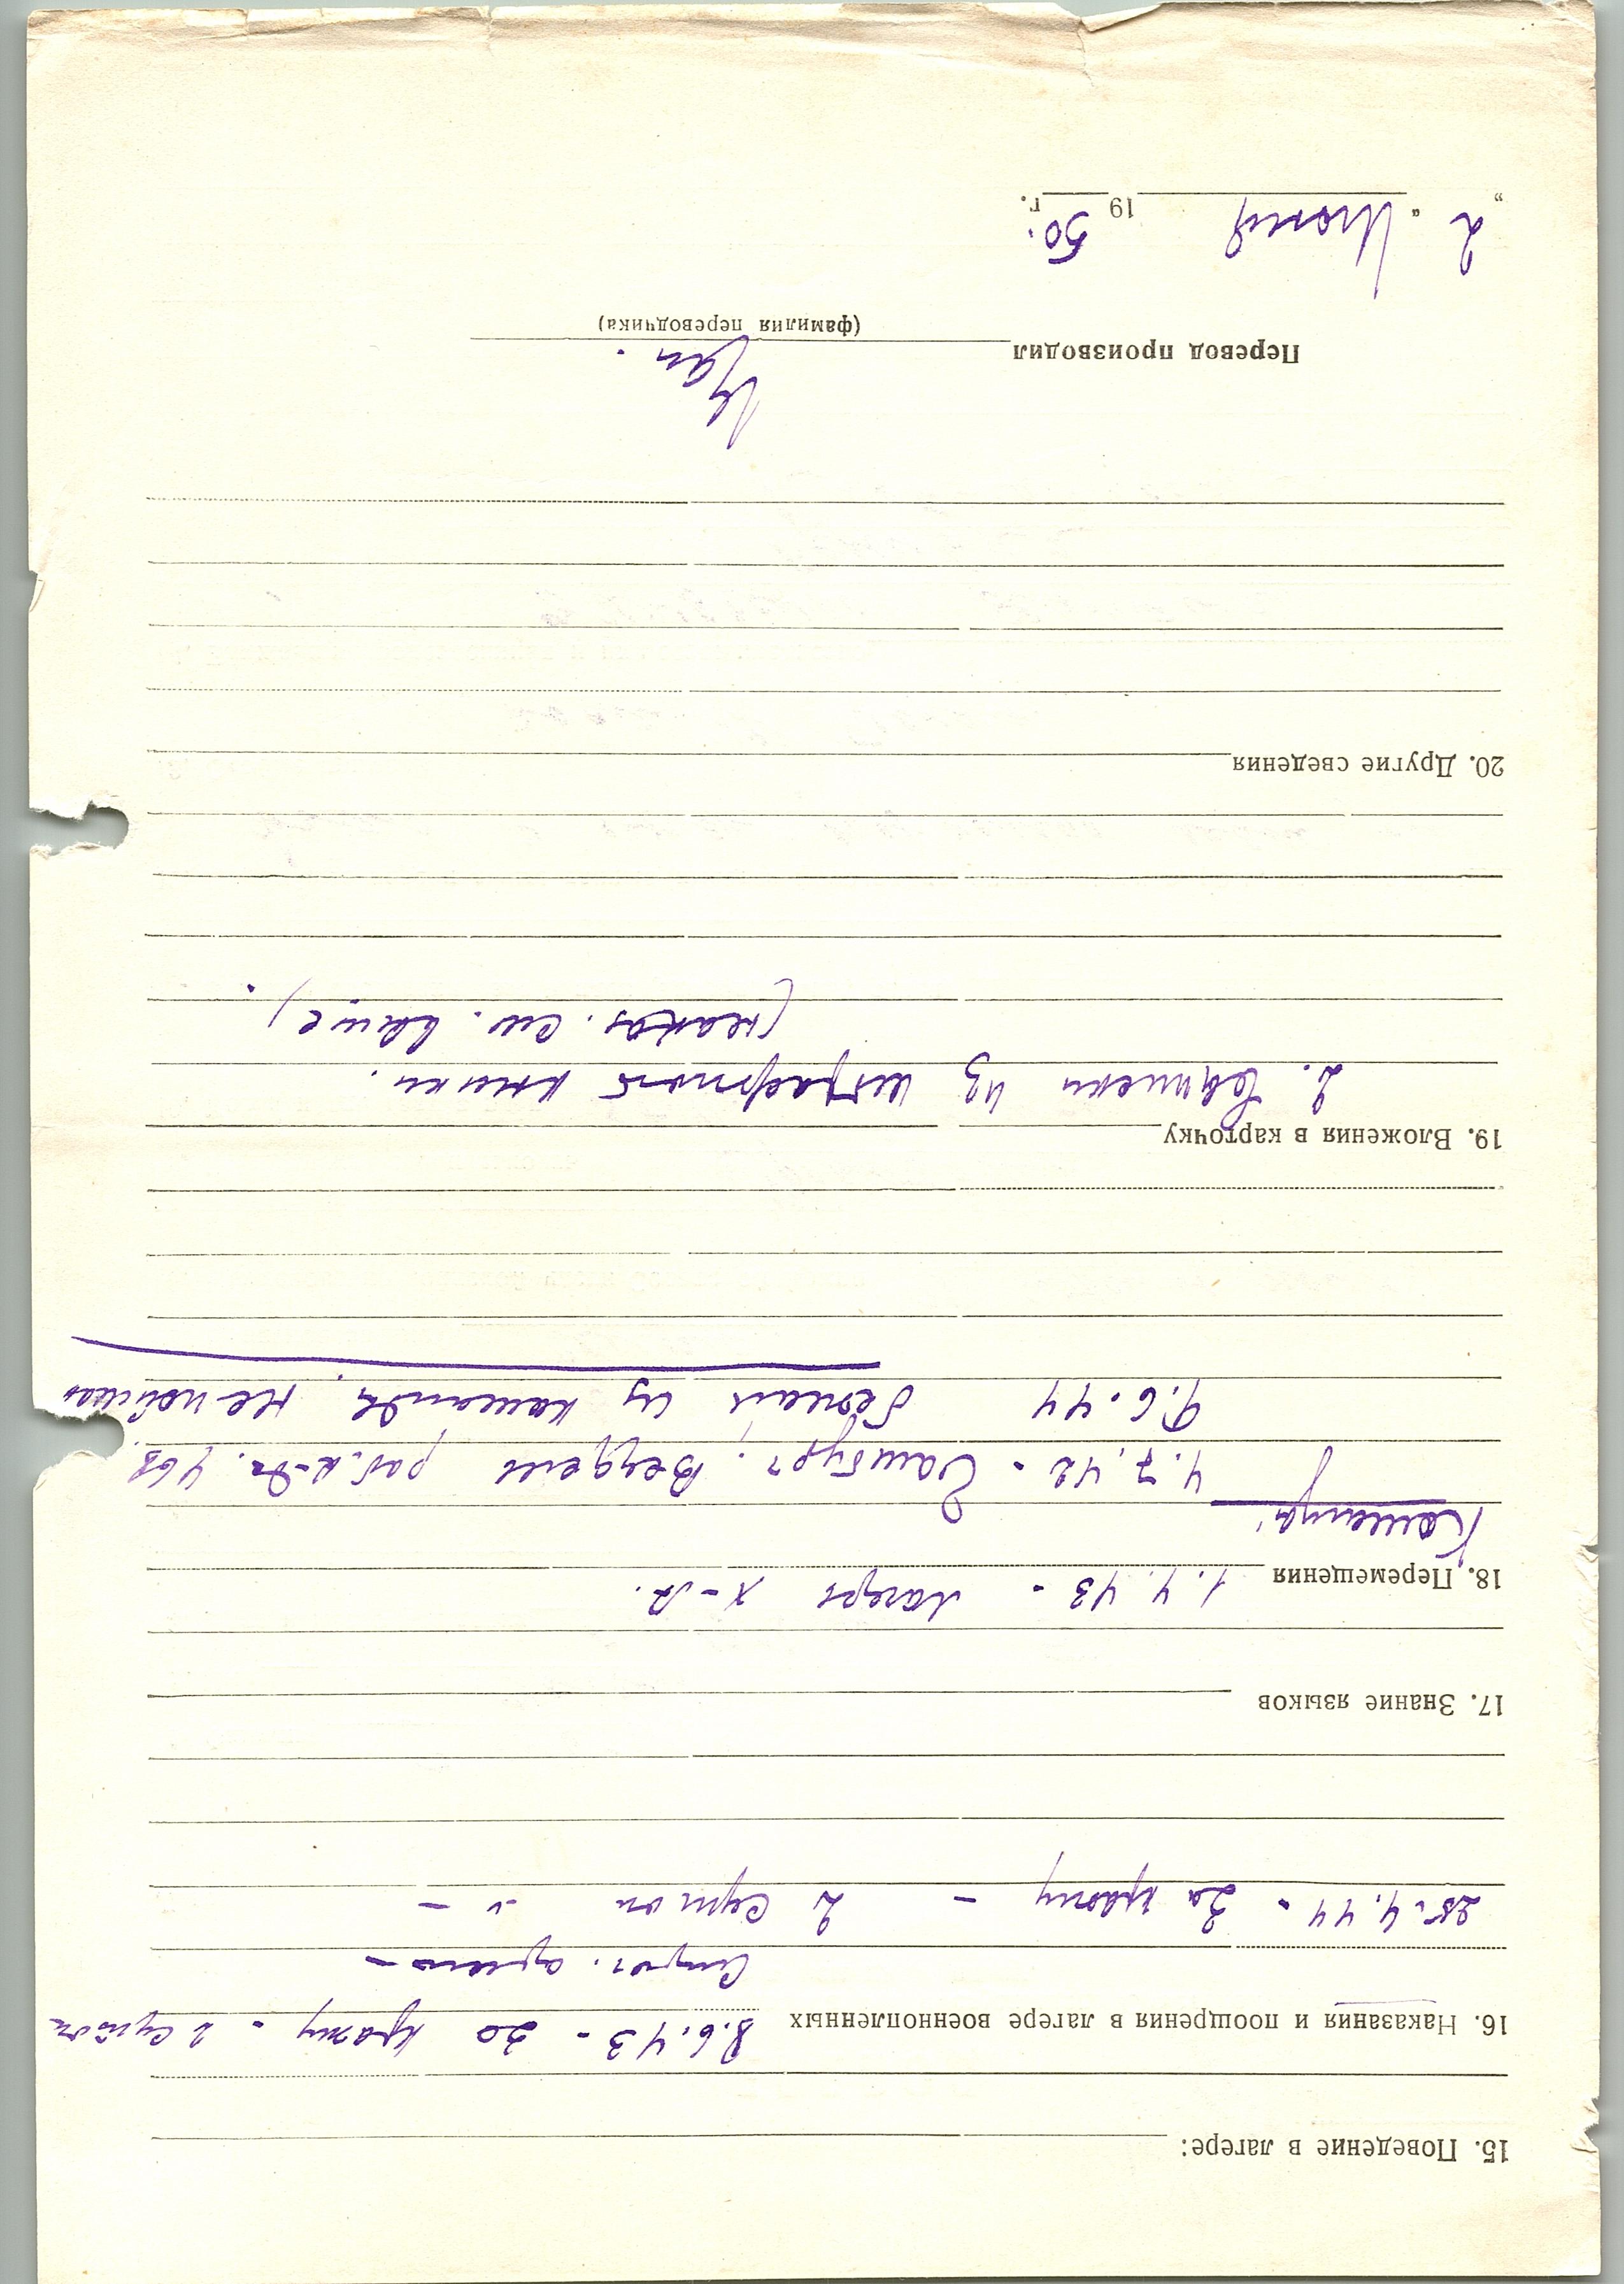 15. Поведение в лагере:
16. Наказания и поощрения в лагере военнопленных 8.6.43 - за кражу - 2 суток
строг. ареста -
25.4.44 - за кражу - 2 суток - " -
17. Знание языков
18. Перемещения 1.4.43 - лагерь X-А.
Команда
4.7.42 - раб. к-да 468.
9.6.44 бежал из команды, не пойман
19. Вложения в карточку
2. Выписки из штрафной книги.
(наказ. см. выше).
20. Другие сведения
Перевод производил
(фамилия переводчика)
„2“ Июня 1950 г.